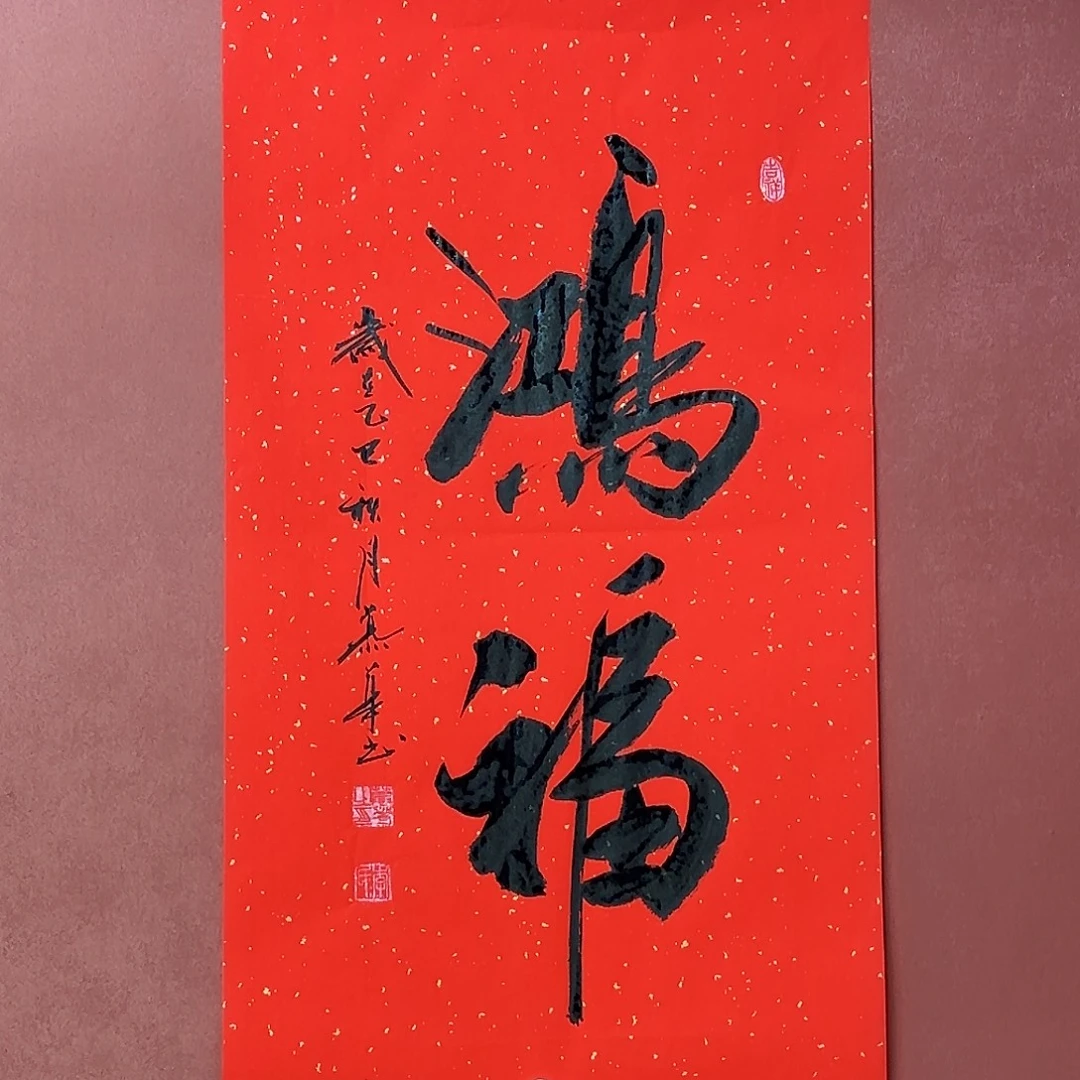 鴻福
歲在乙巳秋月慕華书